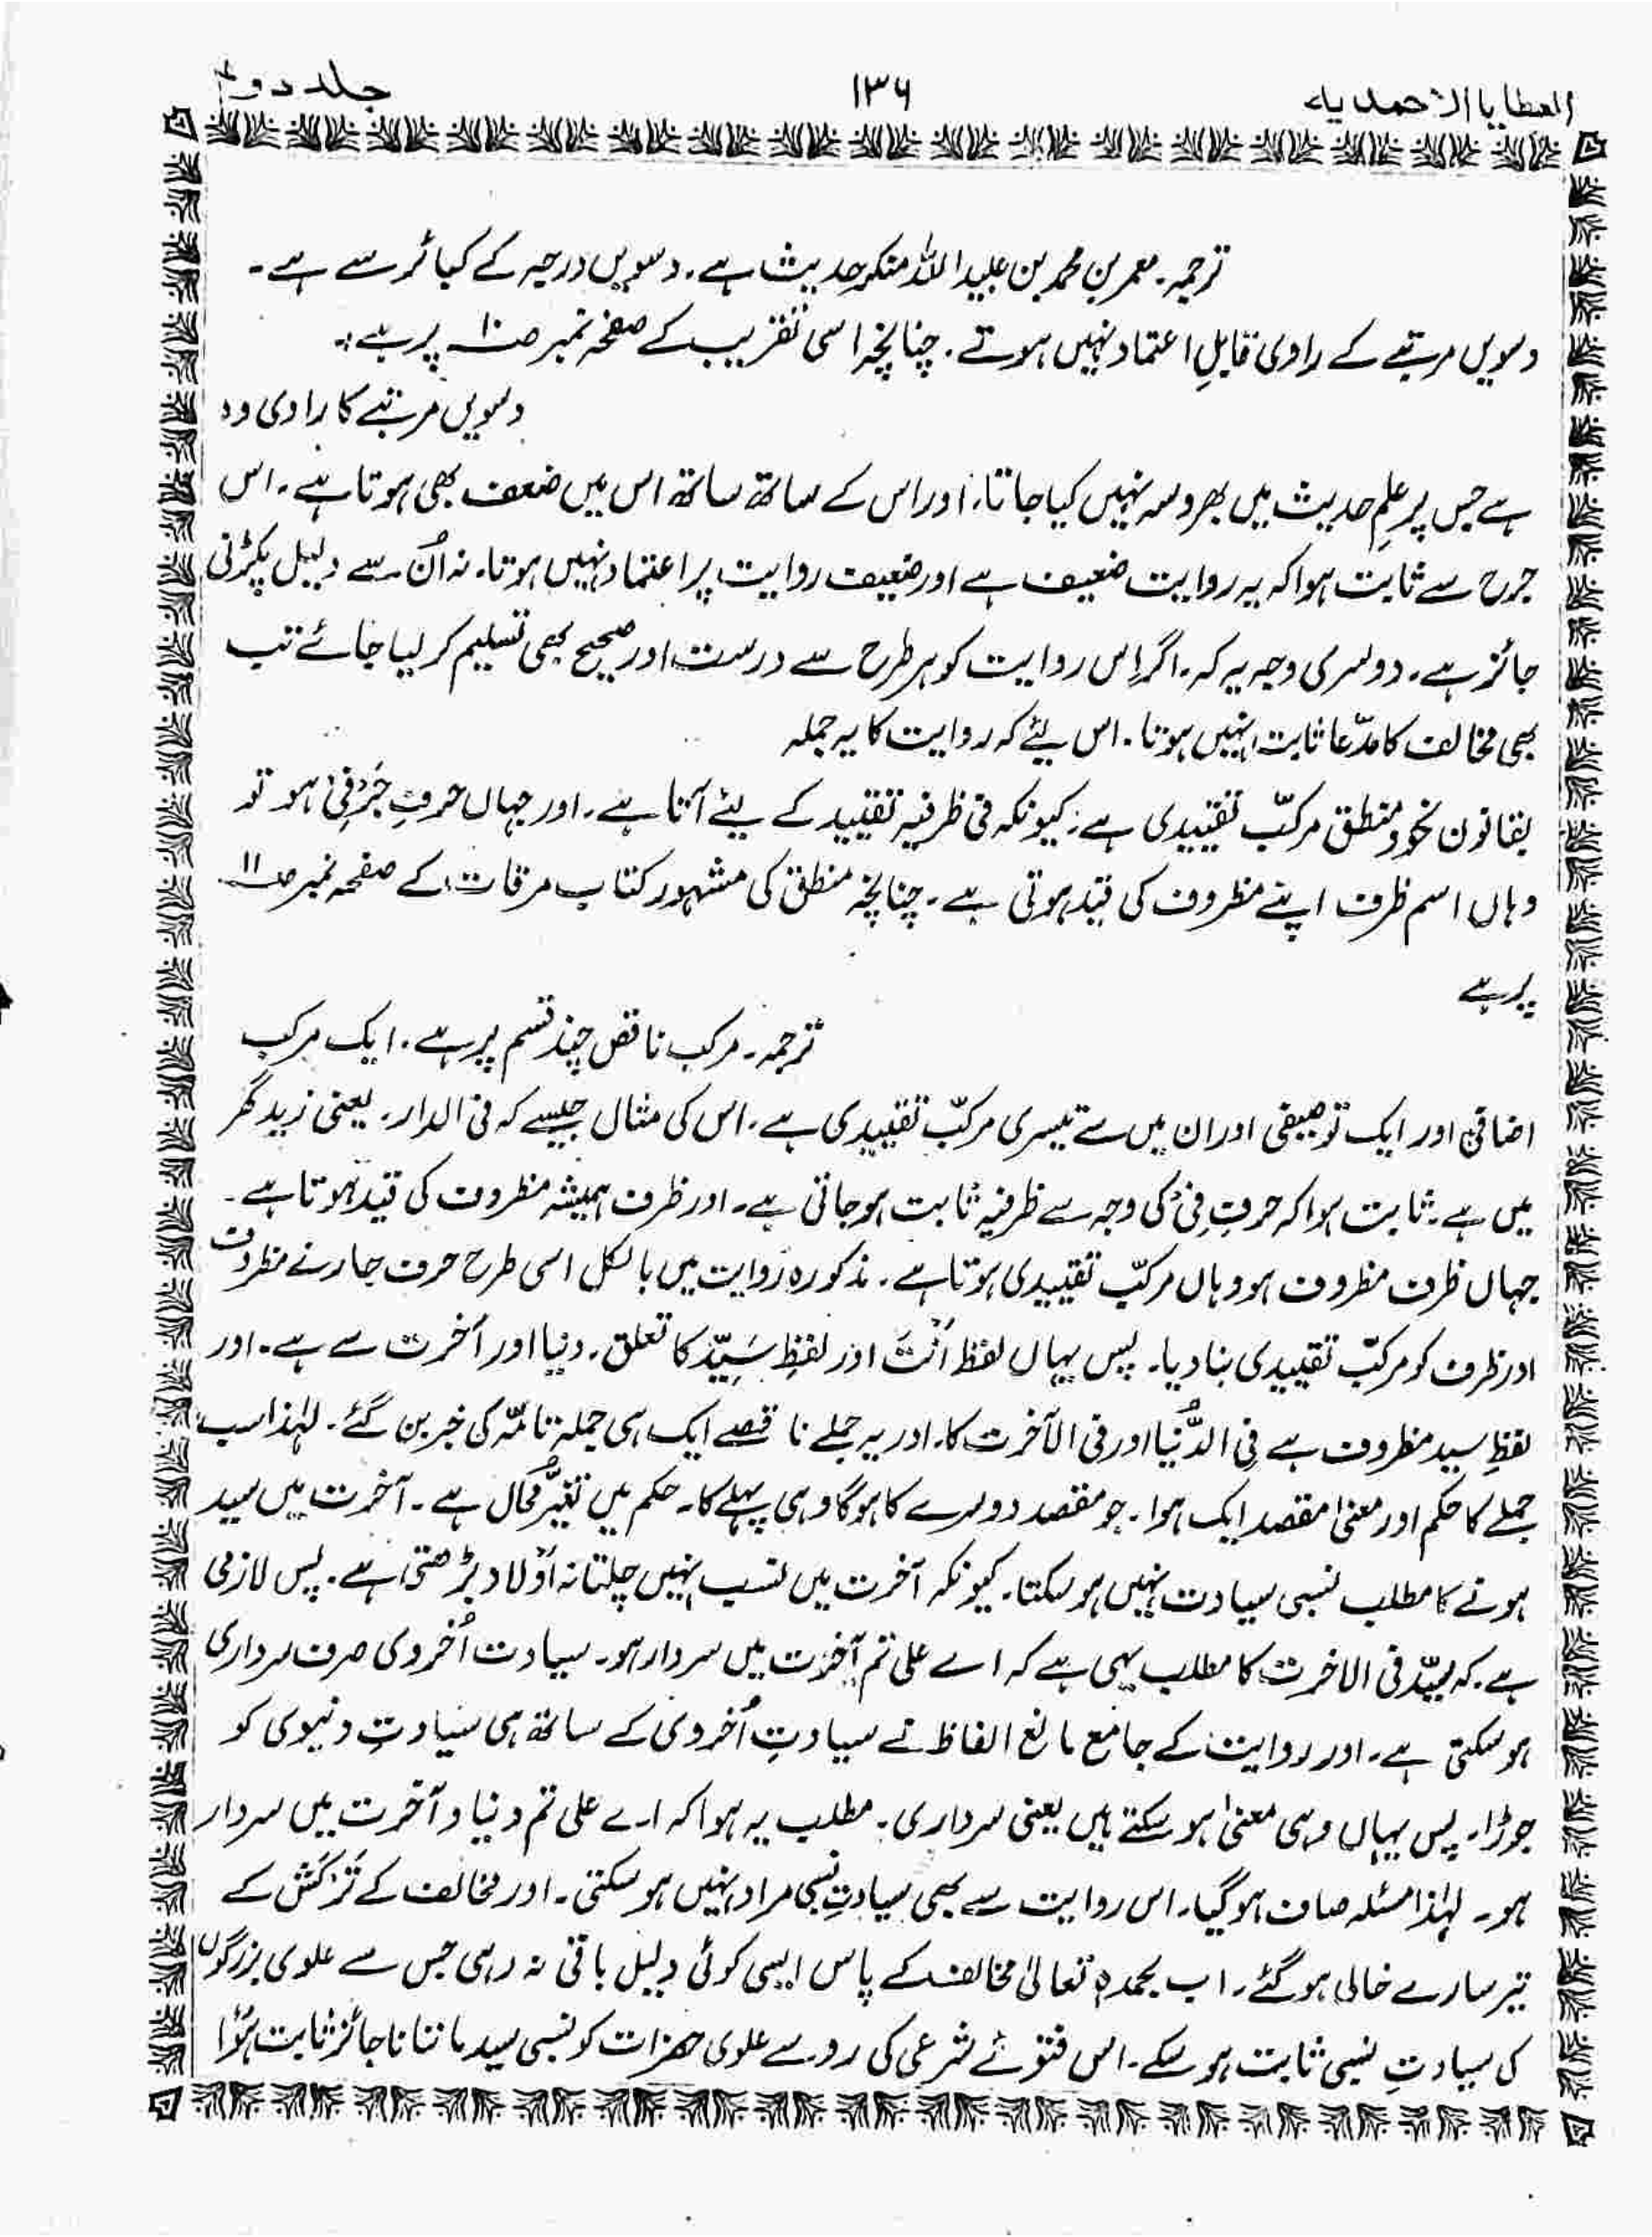 العطایا الاحمدیہ ۱۳۶ جلد دوم
ترجمہ۔ معمر بن محمد بن عبید اللہ منکر حدیث ہے۔ دسویں درجہ کے کبائر سے ہے۔
دسویں مرتبے کے راوی قابلِ اعتماد نہیں ہوتے۔ چنانچہ اسی تقریب کے صفحہ نمبر صـ۱۰ پر ہے:۔
دسویں مرتبے کا راوی وہ
ہے جس پر علمِ حدیث میں بھروسہ نہیں کیا جاتا، اور اس کے ساتھ ساتھ اس میں ضعف بھی ہوتا ہے۔ اس
جرح سے ثابت ہوا کہ یہ روایت ضعیف ہے اور ضعیف روایت پر اعتماد نہیں ہوتا۔ نہ اُن سے دلیل پکڑنی
جائز ہے۔ دوسری وجہ یہ کہ۔ اگر اِس روایت کو ہر طرح سے درست اور صحیح بھی تسلیم کر لیا جائے تب
بھی مخالف کا مدّعا ثابت نہیں ہوتا۔ اس لیئے کہ روایت کا یہ جملہ
بقانون نحو و منطق مرکّب تقییدی ہے: کیونکہ فی ظرفیہ تقیید کے لیئے آتا ہے۔ اور جہاں حروفِ جَرْ فِیْ ہو تو
وہاں اسم ظرف اپنے مظروف کی قید ہوتی ہے۔ چنانچہ منطق کی مشہور کتاب مرقات کے صفحہ نمبر صـ۱۱
پر ہے
ترجمہ۔ مرکب ناقص چند قسم پر ہے۔ ایک مرکب
اضافی اور ایک توصیفی اور ان میں سے تیسری مرکّب تقییدی ہے۔ اس کی مثال جیسے کہ فی الدار۔ یعنی زید گھر
میں ہے۔ ثابت ہوا کہ حروفِ فِیْ کی وجہ سے ظرفیہ ثابت ہو جاتی ہے۔ اور ظرف ہمیشہ مظروف کی قید ہوتا ہے۔
جہاں ظرف مظروف ہو وہاں مرکّب تقییدی ہوتا ہے۔ مذکورہ روایت میں بالکل اسی طرح حرف جار نے مظروف
اور ظرف کو مرکّب تقییدی بنا دیا۔ پس یہاں لفظ اَنْتَ اور لفظِ سَیِّدٌ کا تعلق۔ دنیا اور آخرت سے ہے۔ اور
لفظِ سید مظروف ہے فِی الدُّنْیا اور فی الآخرت کا۔ اور یہ جملے ناقصے ایک ہی جملہ تامّہ کی خبر بن گئے۔ لہٰذا سب
جملے کا حکم اور معنیٰ مقصد ایک ہوا۔ جو مقصد دوسرے کا ہوگا وہی پہلے کا۔ حکم میں تغیُّر مُحال ہے۔ آخرت میں سید
ہونے کا مطلب نسبی سیادت نہیں ہو سکتا۔ کیونکہ آخرت میں نسب نہیں چلتا نہ اَوْلاد بڑھتی ہے۔ پس لازمی
ہے۔ کہ سیّد فی الاخرت کا مطلب یہی ہے کہ اے علی تم آخرت میں سردار ہو۔ سیادت اُخروی صرف سرداری
ہو سکتی ہے۔ اور روایت کے جامع مانع الفاظ نے سیادتِ اُخروی کے ساتھ ہی سیادتِ دنیوی کو
جوڑا۔ پس یہاں وہی معنیٰ ہو سکتے ہیں یعنی سرداری۔ مطلب یہ ہوا کہ اے علی تم دنیا و آخرت میں سردار
ہو۔ لہٰذا مسئلہ صاف ہو گیا۔ اس روایت سے بھی سیادتِ نسبی مراد نہیں ہو سکتی۔ اور مخالف کے تَرْکَش کے
تیر سارے خالی ہو گئے۔ اب بحمدہٖ تعالیٰ مخالف کے پاس ایسی کوئی دلیل باقی نہ رہی جس سے علوی بزرگوں
کی سیادتِ نسبی ثابت ہو سکے۔ اس فتوئے شرعی کی رو سے علوی حضرات کو نسبی سید ماننا ناجائز ثابت ہؤا